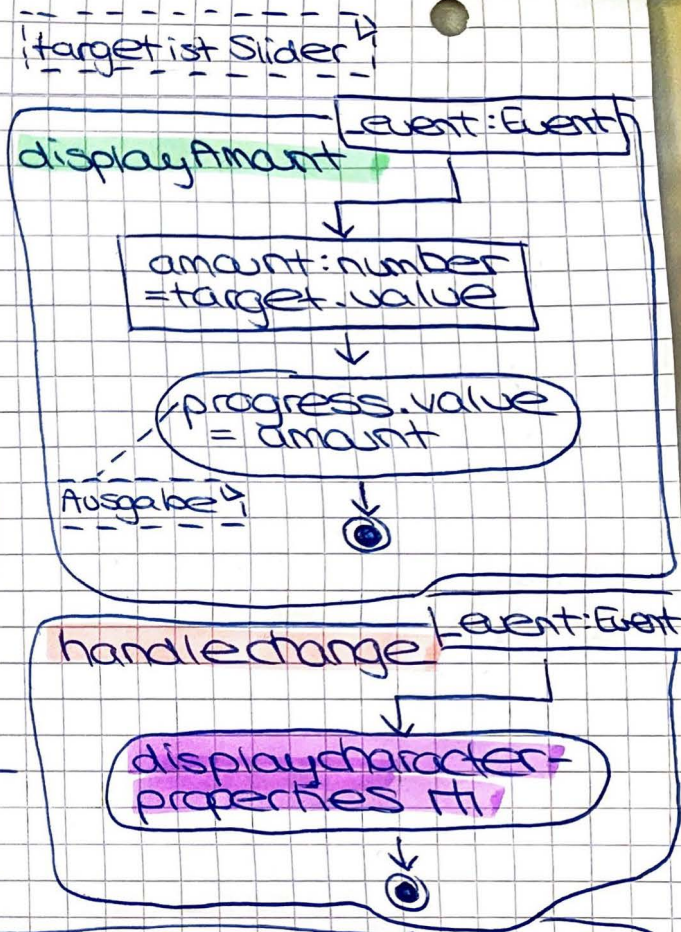 target ist Slider
_event:Event
displayAmount
amount:number
=target.value
progress.value
= amount
Ausgabe
_event:Event
handlechange
displaycharacter-
properties